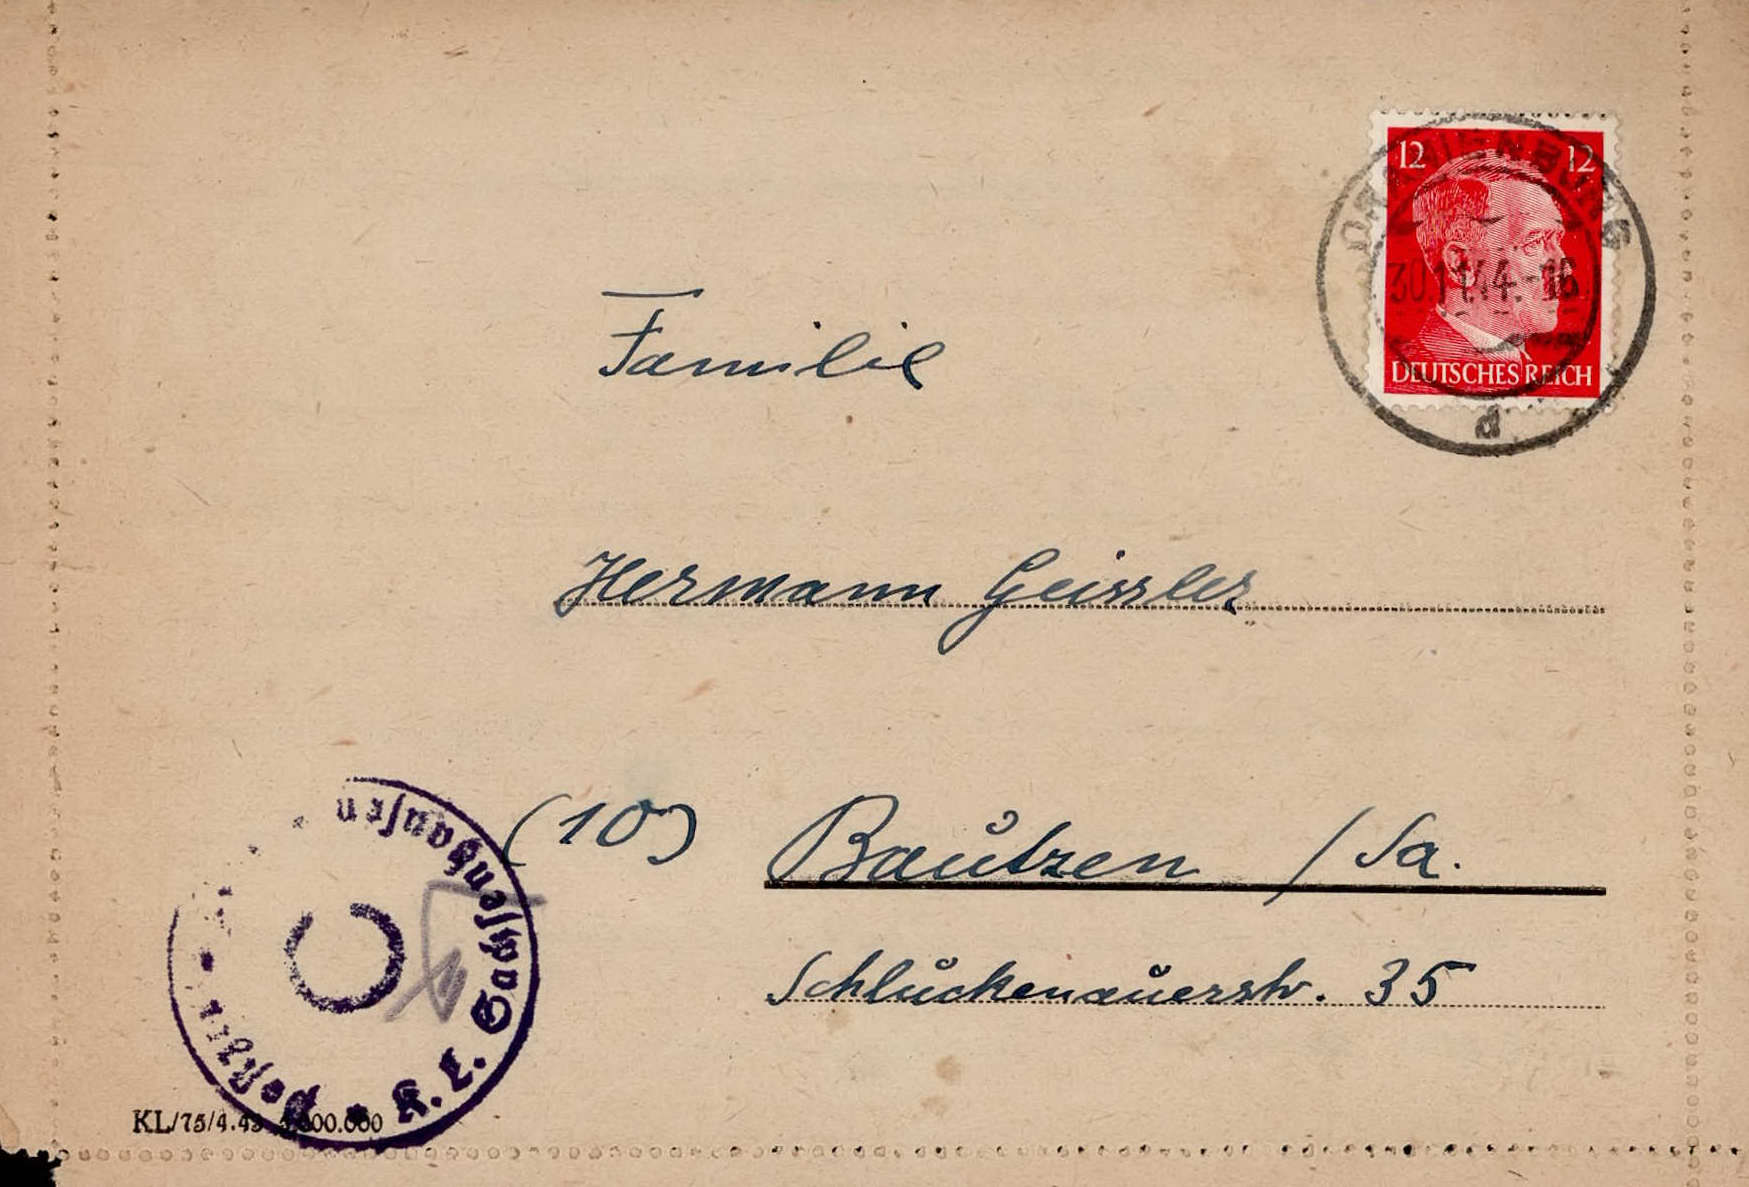 12 12
ORANIENBURG
30.11.44.-16
DEUTSCHES REICH
d
Familie
Hermann Geissler
(10) Bautzen /Sa.
Schluckenauerstr. 35
K. L. Sachsenhausen
KL/75/4.43 000.000